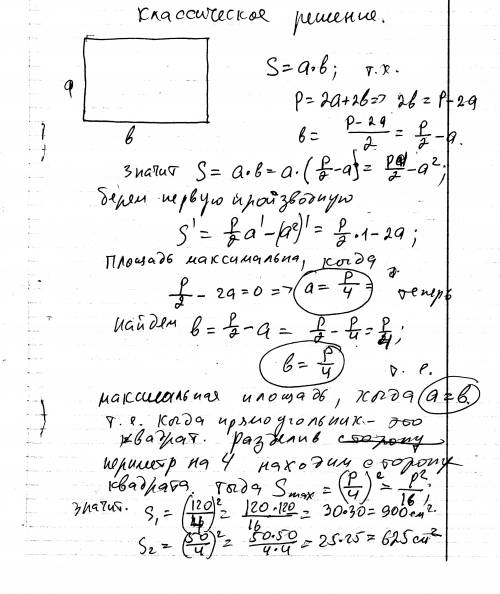 классическое решение.
a
S = a·b; т.к.
P = 2a+2b => 2b = P-2a
b
b = (P-2a)/2 = P/2 - a.
значит S = a·b = a·(P/2 - a) = Pa/2 - a²;
берем первую производную
S' = P/2 a' - (a²)' = P/2 · 1 - 2a;
площадь максимальна, когда
P/2 - 2a = 0 => a = P/4 = теперь
найдем b = P/2 - a = P/2 - P/4 = P/4;
b = P/4 т. е.
максимальная площадь, когда a = b,
т. е. когда прямоугольник - это
квадрат. разделив сторону
периметр на 4 находим сторону
квадрата, тогда Smax = (P/4)² = P²/16;
значит. S₁ = (120/4)² = 120·120/16 = 30·30 = 900 см².
S₂ = (50/4)² = 50·50/4·4 = 25·25 = 625 см²